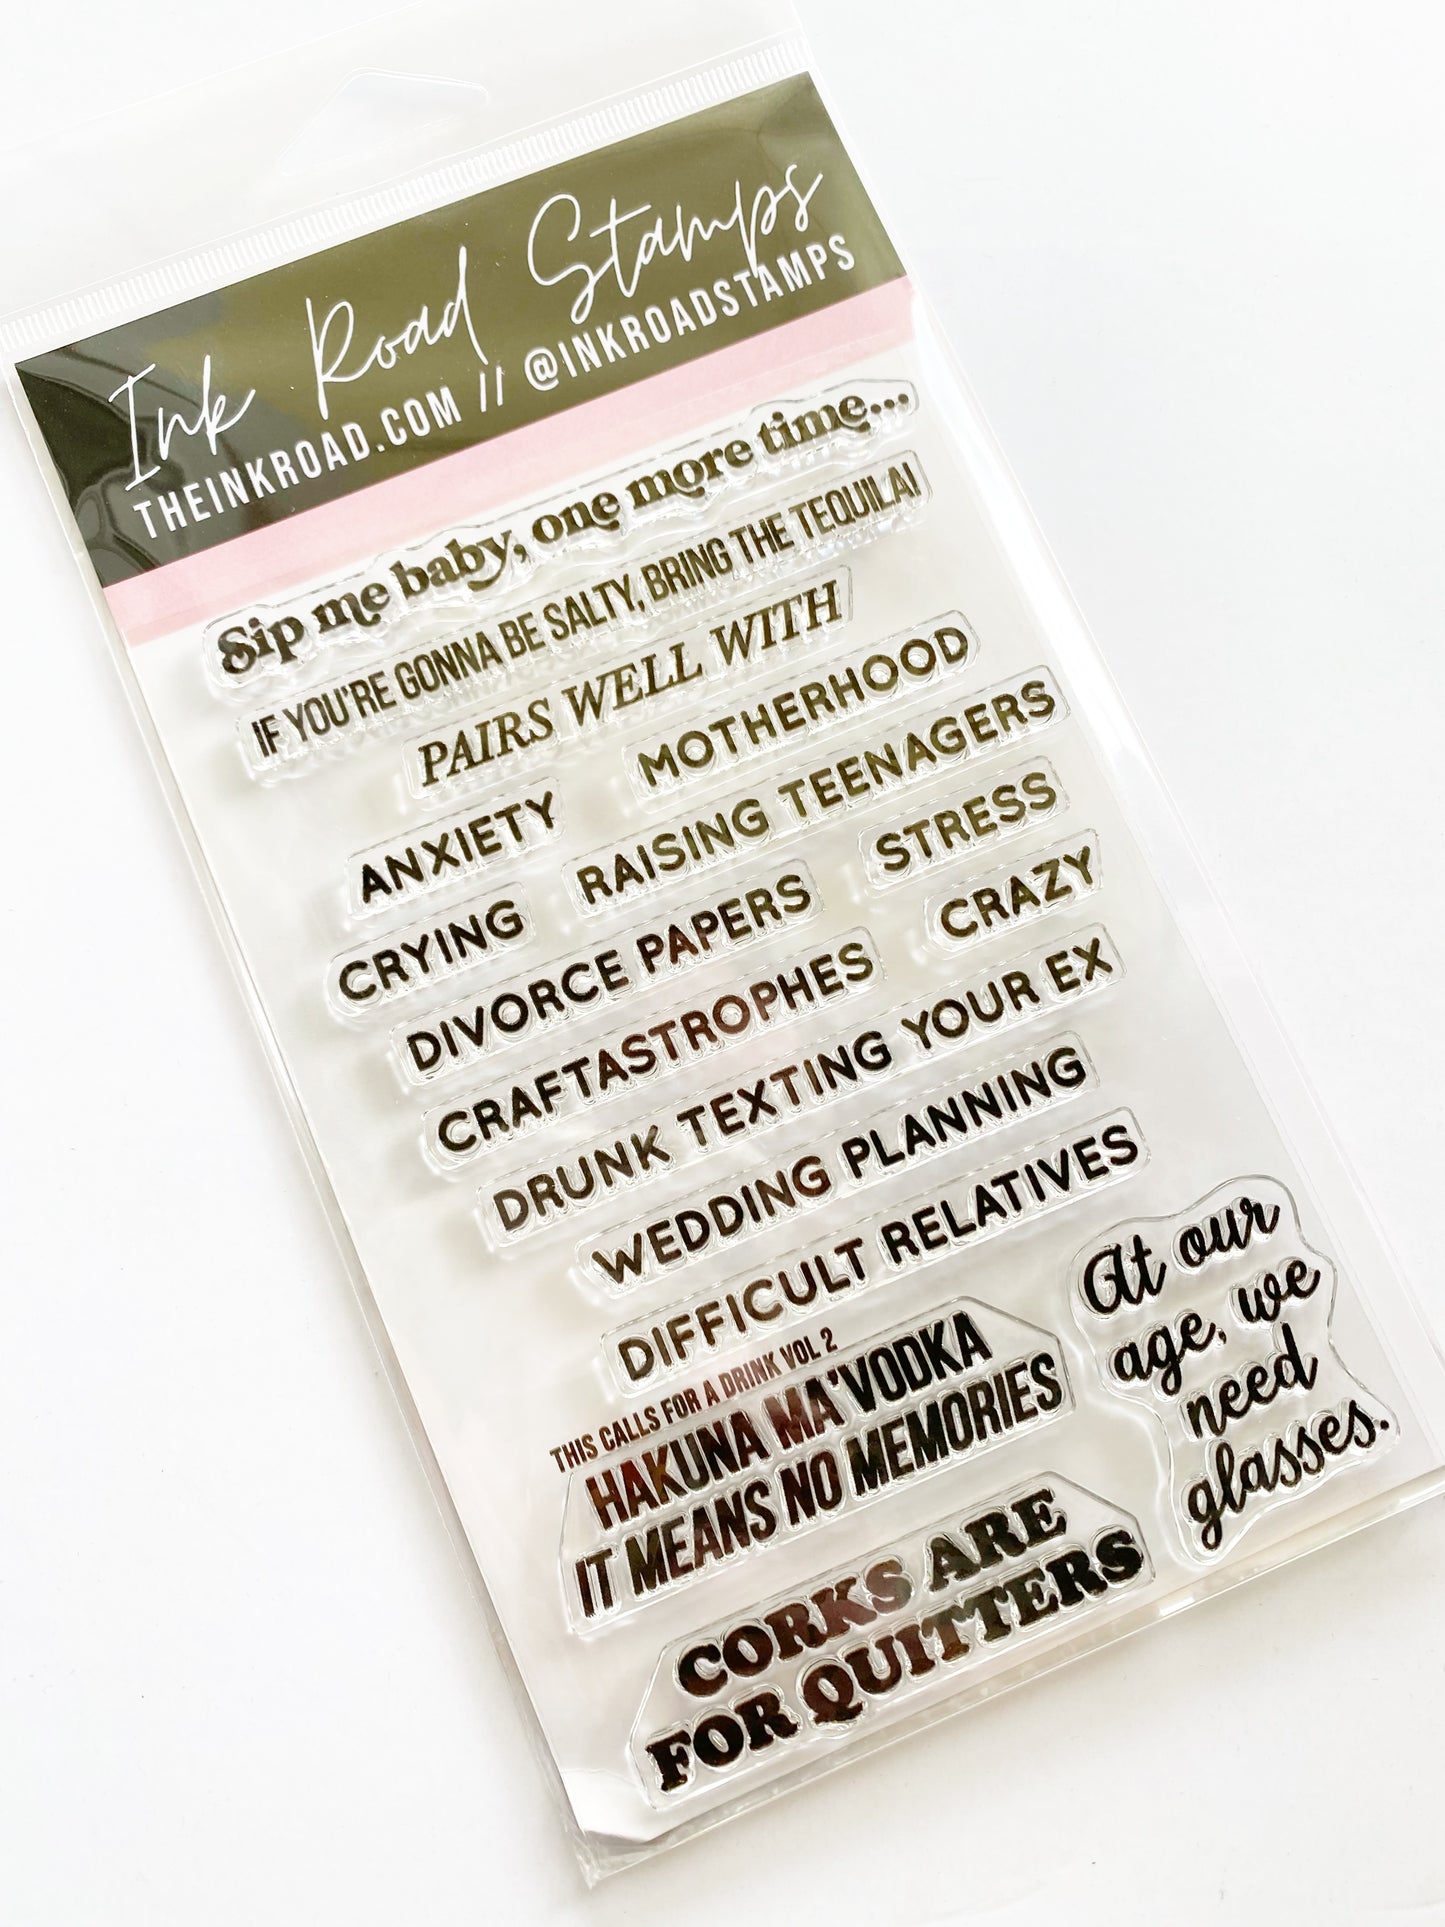 Ink Road Stamps
THEINKROAD.COM // @INKROADSTAMPS
Sip me baby, one more time...
IF YOU'RE GONNA BE SALTY, BRING THE TEQUILA!
PAIRS WELL WITH
MOTHERHOOD
ANXIETY
RAISING TEENAGERS
STRESS
CRYING
DIVORCE PAPERS
CRAZY
CRAFTASTROPHES
DRUNK TEXTING YOUR EX
WEDDING PLANNING
DIFFICULT RELATIVES
THIS CALLS FOR A DRINK VOL 2
HAKUNA MA'VODKA
IT MEANS NO MEMORIES
At our
age, we
need
glasses.
CORKS ARE
FOR QUITTERS